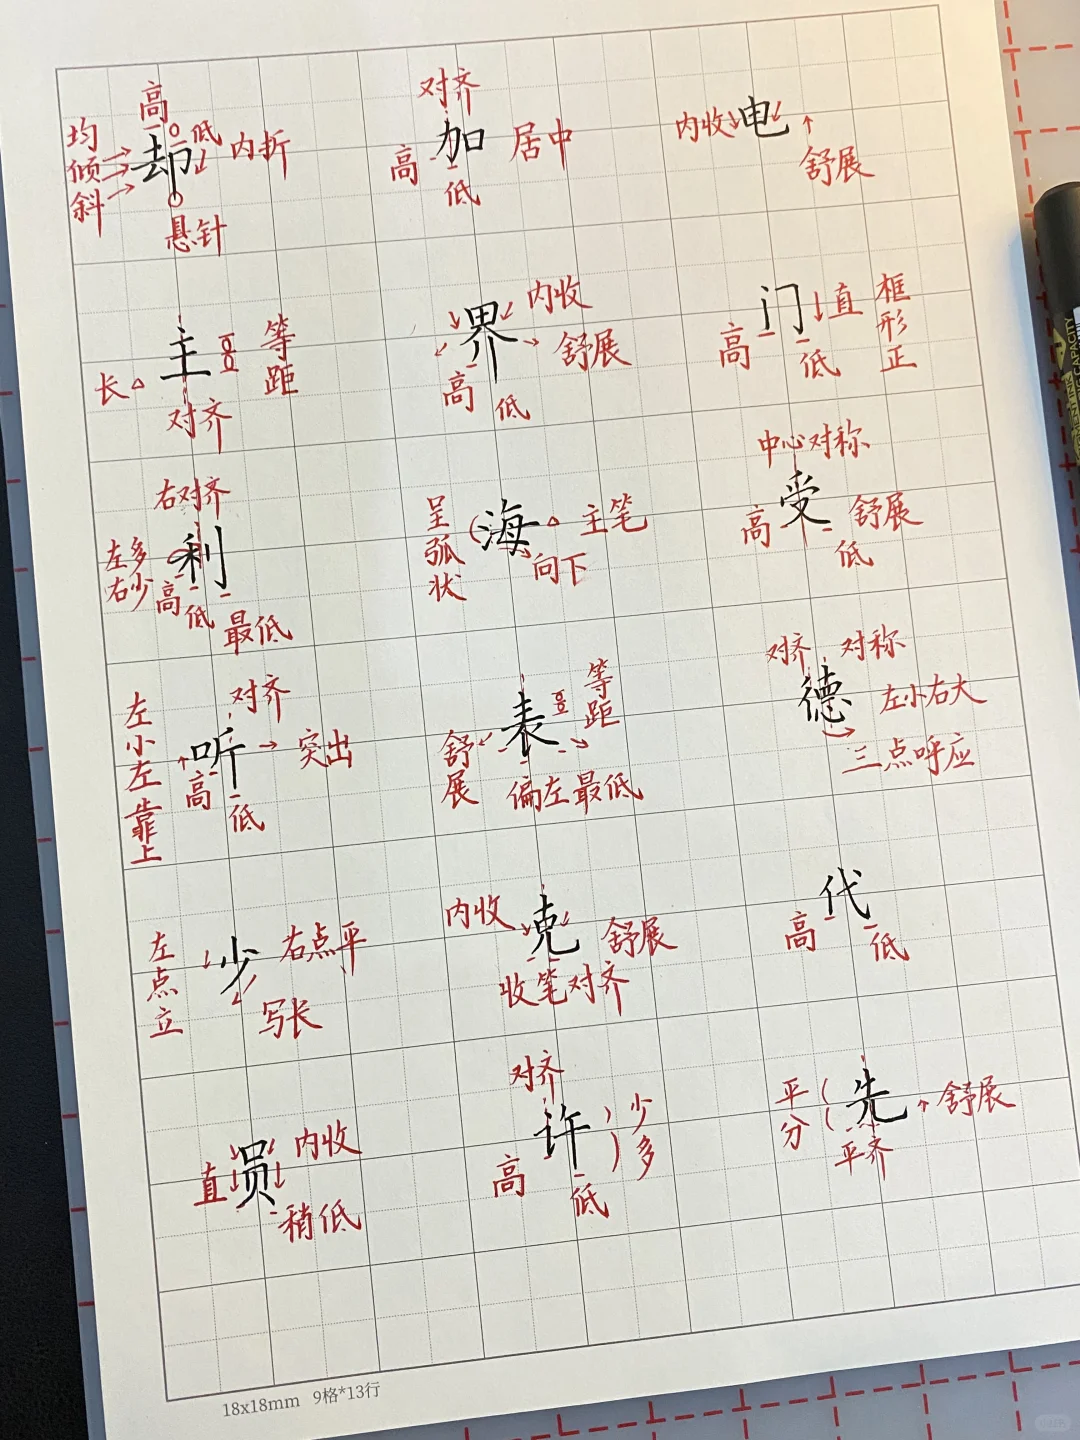 高
均倾斜 却 低 内折
悬针
对齐
高 加 居中
低
内收 电
舒展
主 等距
长
对齐
内收
界 舒展
高 低
门 直 框形正
高 低
右对齐
左多右少 利
高 低 最低
呈弧状 海 主笔
向下
中心对称
高 受 舒展
低
左小左靠上 对齐
听 突出
高 低
等距
舒展 表
偏左最低
对齐 对称
德 左小右大
三点呼应
左点立 少 右点平
写长
内收 克 舒展
收笔对齐
代
高 低
直 员 内收
稍低
对齐
许 少多
高 低
平分 先 舒展
平齐
18x18mm 9格*13行